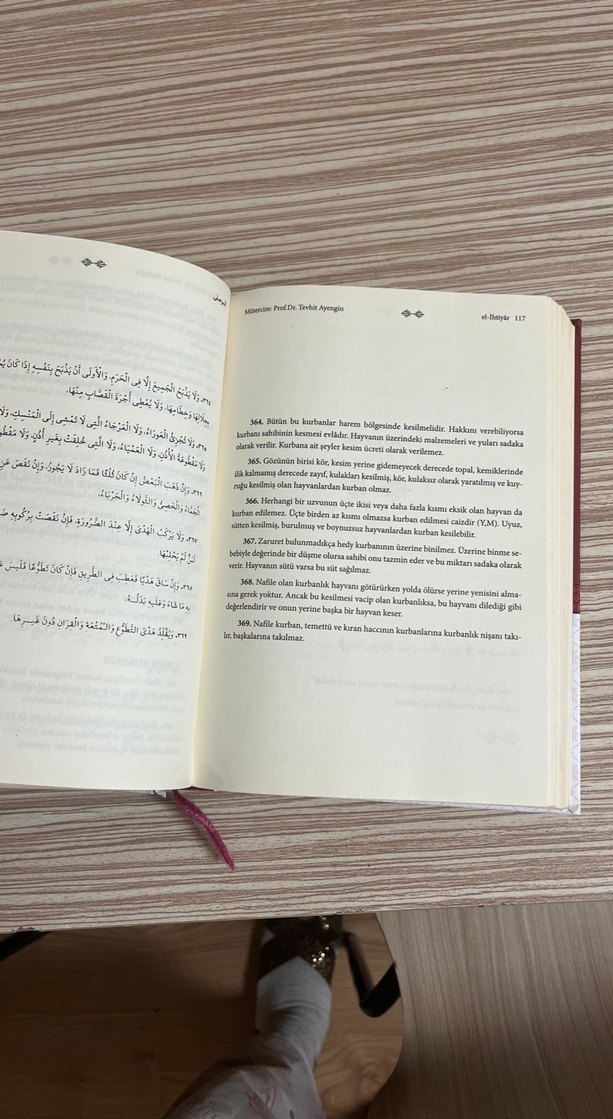 وَلَا يَذْبَحُ الْجَمِيعَ إِلَّا فِي الْحَرَمِ، وَالْأَوْلَى أَنْ يَذْبَحَ بِنَفْسِهِ إِذَا كَانَ
بِجِلَالِهَا وَخِطَامِهَا، وَلَا يُعْطِي أُجْرَةَ الْقَصَّابِ مِنْهَا.
٣٦٥. وَلَا تُجْزِئُ الْعَوْرَاءُ، وَلَا الْعَرْجَاءُ الَّتِي لَا تَمْشِي إِلَى الْمَنْسِكِ، وَلَا
وَلَا مَقْطُوعَةُ الْأُذُنِ، وَلَا الْعَمْيَاءُ، وَلَا الَّتِي خُلِقَتْ بِغَيْرِ أُذُنٍ، وَلَا
٣٦٦. وَإِنْ ذَهَبَ الْبَعْضُ إِنْ كَانَ ثُلُثًا فَمَا زَادَ لَا يَجُوزُ، وَإِنْ نَقَصَ عَنِ
الْجَمَّاءُ وَالْخَصِيُّ وَالثَّوْلَاءُ وَالْجَرْبَاءُ.
٣٦٧. وَلَا يَرْكَبُ الْهَدْيَ إِلَّا عِنْدَ الضَّرُورَةِ، فَإِنْ نَقَصَتْ بِرُكُوبِهِ
لَبَنٌ لَمْ يَحْلِبْهَا.
٣٦٨. وَإِنْ سَاقَ هَدْيًا فَعَطِبَ فِي الطَّرِيقِ فَإِنْ كَانَ تَطَوُّعًا فَلَيْسَ
بِهِ مَا شَاءَ وَعَلَيْهِ بَدَلُهُ.
٣٦٩. وَيُقَلَّدُ هَدْيُ التَّطَوُّعِ وَالْمُتْعَةِ وَالْقِرَانِ دُونَ غَيْرِهَا
Mütercim: Prof.Dr. Tevhit Ayengin
el-İhtiyâr 117
364. Bütün bu kurbanlar harem bölgesinde kesilmelidir. Hakkını verebiliyorsa
kurbanı sahibinin kesmesi evlâdır. Hayvanın üzerindeki malzemeleri ve yuları sadaka
olarak verilir. Kurbana ait şeyler kesim ücreti olarak verilemez.
365. Gözünün birisi kör, kesim yerine gidemeyecek derecede topal, kemiklerinde
ilik kalmamış derecede zayıf, kulakları kesilmiş, kör, kulaksız olarak yaratılmış ve kuy-
ruğu kesilmiş olan hayvanlardan kurban olmaz.
366. Herhangi bir uzvunun üçte ikisi veya daha fazla kısmı eksik olan hayvan da
kurban edilemez. Üçte birden az kısmı olmazsa kurban edilmesi caizdir (Y,M). Uyuz,
sütten kesilmiş, burulmuş ve boynuzsuz hayvanlardan kurban kesilebilir.
367. Zaruret bulunmadıkça hedy kurbanının üzerine binilmez. Üzerine binme se-
bebiyle değerinde bir düşme olursa sahibi onu tazmin eder ve bu miktarı sadaka olarak
verir. Hayvanın sütü varsa bu süt sağılmaz.
368. Nafile olan kurbanlık hayvanı götürürken yolda ölürse yerine yenisini alma-
sına gerek yoktur. Ancak bu kesilmesi vacip olan kurbanlıksa, bu hayvanı dilediği gibi
değerlendirir ve onun yerine başka bir hayvan keser.
369. Nafile kurban, temettü ve kıran haccının kurbanlarına kurbanlık nişanı takı-
lır, başkalarına takılmaz.